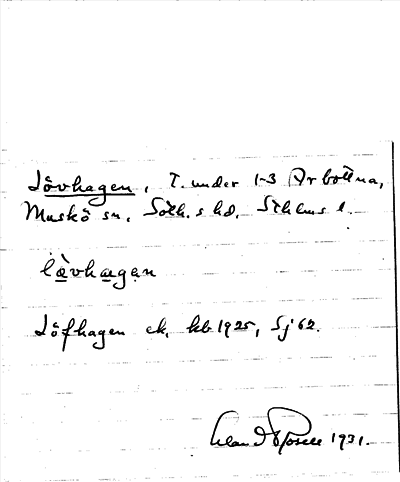 Lövhagen, T. under 1-3 Arbottna,
Muskö sn, Soth.s hd. Sthlms l.
lǜvhagen
Löfhagen ek. kb 1925, Sj 62.
1931.